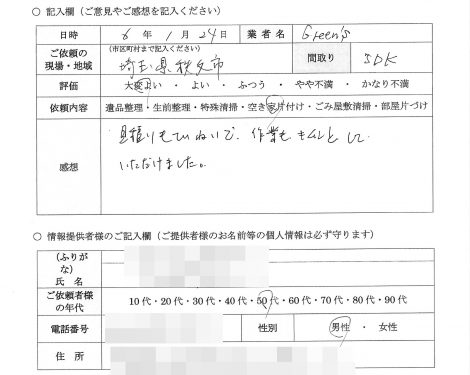 ○ 記入欄（ご意見やご感想を記入ください）
日時 6 年 1 月 24 日 業者名 Green's
ご依頼の現場・地域 (市区町村まで記入ください) 埼玉県秩父市 間取り 5DK
評価 大変よい・よい・ふつう・やや不満・かなり不満
依頼内容 遺品整理・生前整理・特殊清掃・空き家片付け・ごみ屋敷清掃・部屋片づけ
感想 見積りもていねいで、作業もキチンとして
いただけました。
○ 情報提供者様のご記入欄（ご提供者様のお名前等の個人情報は必ず守ります）
(ふりがな)
氏名
ご依頼者様の年代 10代・20代・30代・40代・50代・60代・70代・80代・90代
電話番号 性別 男性・女性
住所